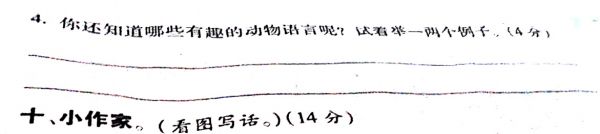 4. 你还知道哪些有趣的动物语言呢？试着举一两个例子。(4分)
十、小作家。(看图写话。)(14分)